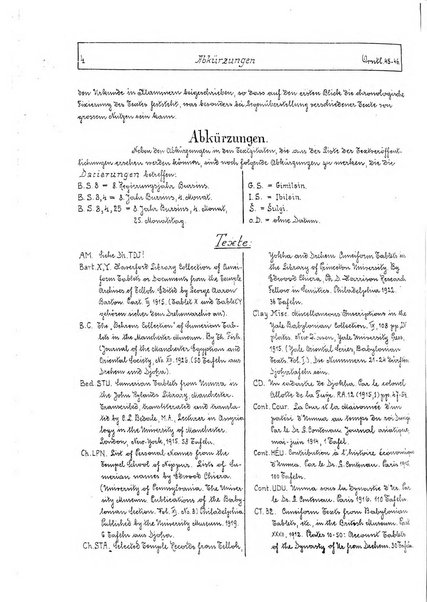 4 Abkürzungen Orntl. 45-46
den Urkunde in Klammern beigeschrieben, so dass auf den ersten Blick die chronologische
Fixierung des Textes feststeht, was besonders bei Gegenüberstellung verschiedener Texte von
grossem Nutzen sein kann.
Abkürzungen.
Neben den Abkürzungen in den Textzitaten, die aus der Liste der Textveröffent-
lichungen ersehen werden können, sind noch folgende Abkürzungen zu merken, die die
Datierungen betreffen:
B.S. 8 = 8. Regierungsjahr Bursins.
B.S. 8, 4 = 8. Jahr Bursins, 4. Monat.
B.S. 8, 4, 25 = 8. Jahr Bursins, 4. Monat,
25. Monatstag
G.S. = Gimilsin.
I.S. = Ibisin.
Š. = Šulgi.
o.D. = ohne Datum.
Texte:
AM. siehe Sh. TDJ!
Bart. X, Y. Haverford Library Collection of Cunei-
form Tablets or Documents from the Temple
Archives of Telloh. Edited by George Aaron
Barton. Part III, 1915. (Tablet X and Tablet Y
gehören sicher dem Drehemarchiv an).
B.C. The „Behrens Collection" of Sumerian Tab-
lets in the Manchester Museum. By Th. Fish.
(Journal of the Manchester Egyptian and
Oriental Society, No. XII, 1926. (50 Tafeln aus
Drehem und Djoha).
Bed. STU. Sumerian Tablets from Umma, in
the John Rylands Library, Manchester.
Transcribed, transliterated and transla-
ted by C. L. Bedale, M.A., Lecturer in Assyrio-
logy in the University of Manchester.
London, New-York, 1915. 58 Tafeln.
Ch. LPN. List of Personal Names from the
Temple School of Nippur. Lists of Su-
merian names by Edward Chiera.
(University of Pennsylvania. The Univer-
sity Museum. Publications of the Baby-
lonian Section. Vol. XI, No. 3.) Philadelphia
Published by the University Museum. 1919.
Tafeln aus Drehem und Djoha.
Ch. STA. Selected Temple Records from Telloh,
Yokha and Drehem. Cuneiform Tablets in
the Library of Princeton University. By
Edward Chiera, Ph. D., Harrison Research
Fellow in Semitics. Philadelphia 1922.
36 Tafeln.
Clay Misc. Miscellaneous Inscriptions in the
Yale Babylonian Collection, 108 pp.
plates. New Haven, Yale University Press,
1915. (Yale Oriental Series, Babylonian
Texts, Vol. I). Die Nummern 21-24 dürften
Djohatafeln sein.
CD. Un cadastre de Djokha. Par le colonel
Allotte de la Fuÿe. RA. 12 (1915,1) pp 47-54.
Cont. Cour. La Cour et la Maisonnée d'un
patési d'Umma au temps de
par le Dr. G. Contenau. Journal asiatique,
mai-juin 1914, 1 Tafel.
Cont. HEU. Contribution à l'histoire économique
d'Umma. Par le Dr. G. Contenau. Paris 1915.
100 Tafeln.
Cont. UDU. Umma sous la Dynastie d'Ur. Par
le Dr. G. Contenau. Paris 1916. 110 Tafeln.
CT. 32. Cuneiform Texts from Babylonian
Tablets, etc., in the British Museum. Part
XXXII, 1912. Plates 10-50: Account Tablets
of the Dynasty of Ur from Drehem. 50 Tafeln.